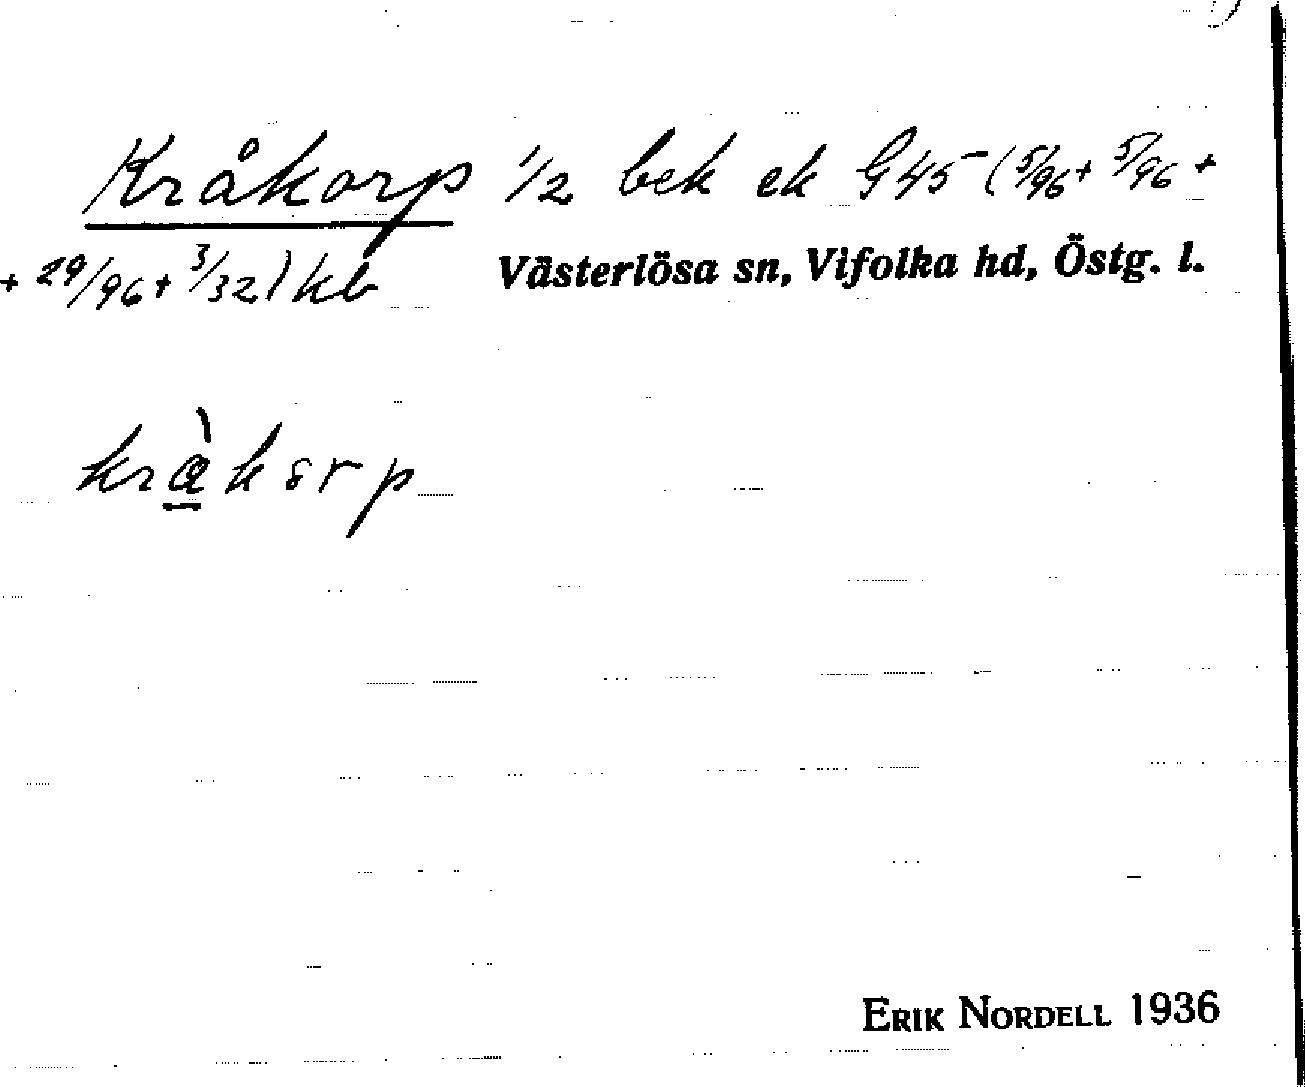 Kråkorp 1/2 bek ek G45 (5/96 + 5/96 +
+ 29/96 + 3/32) kb
Västerlösa sn, Vifolka hd, Östg. l.
ERIK NORDELL 1936